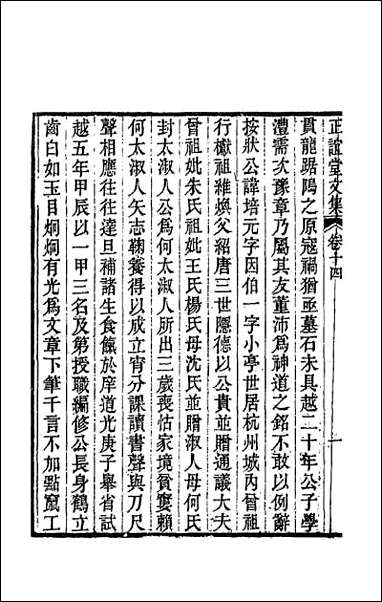 正誼堂文集 卷十四
貫龍踞陽之原寇禍猶亟墓石未具越二十年公子學
澧需次豫章乃屬其友董沛爲神道之銘不敢以例辭
按狀公諱培元字因伯一字小亭世居杭州城內曾祖
行巘祖維煥父紹唐三世隱德以公貴並贈通議大夫
曾祖妣朱氏祖妣王氏楊氏母沈氏並贈淑人母何氏
封太淑人公爲何太淑人所出三歲喪怙家境貧窶賴
何太淑人矢志鞠養得以成立宵分課讀書聲與刀尺
聲相應往往達旦補諸生食餼於庠道光庚子舉省試
越五年甲辰以一甲三名及第授職編修公長身鶴立
齒白如玉目炯炯有光爲文章下筆千言不加點竄工